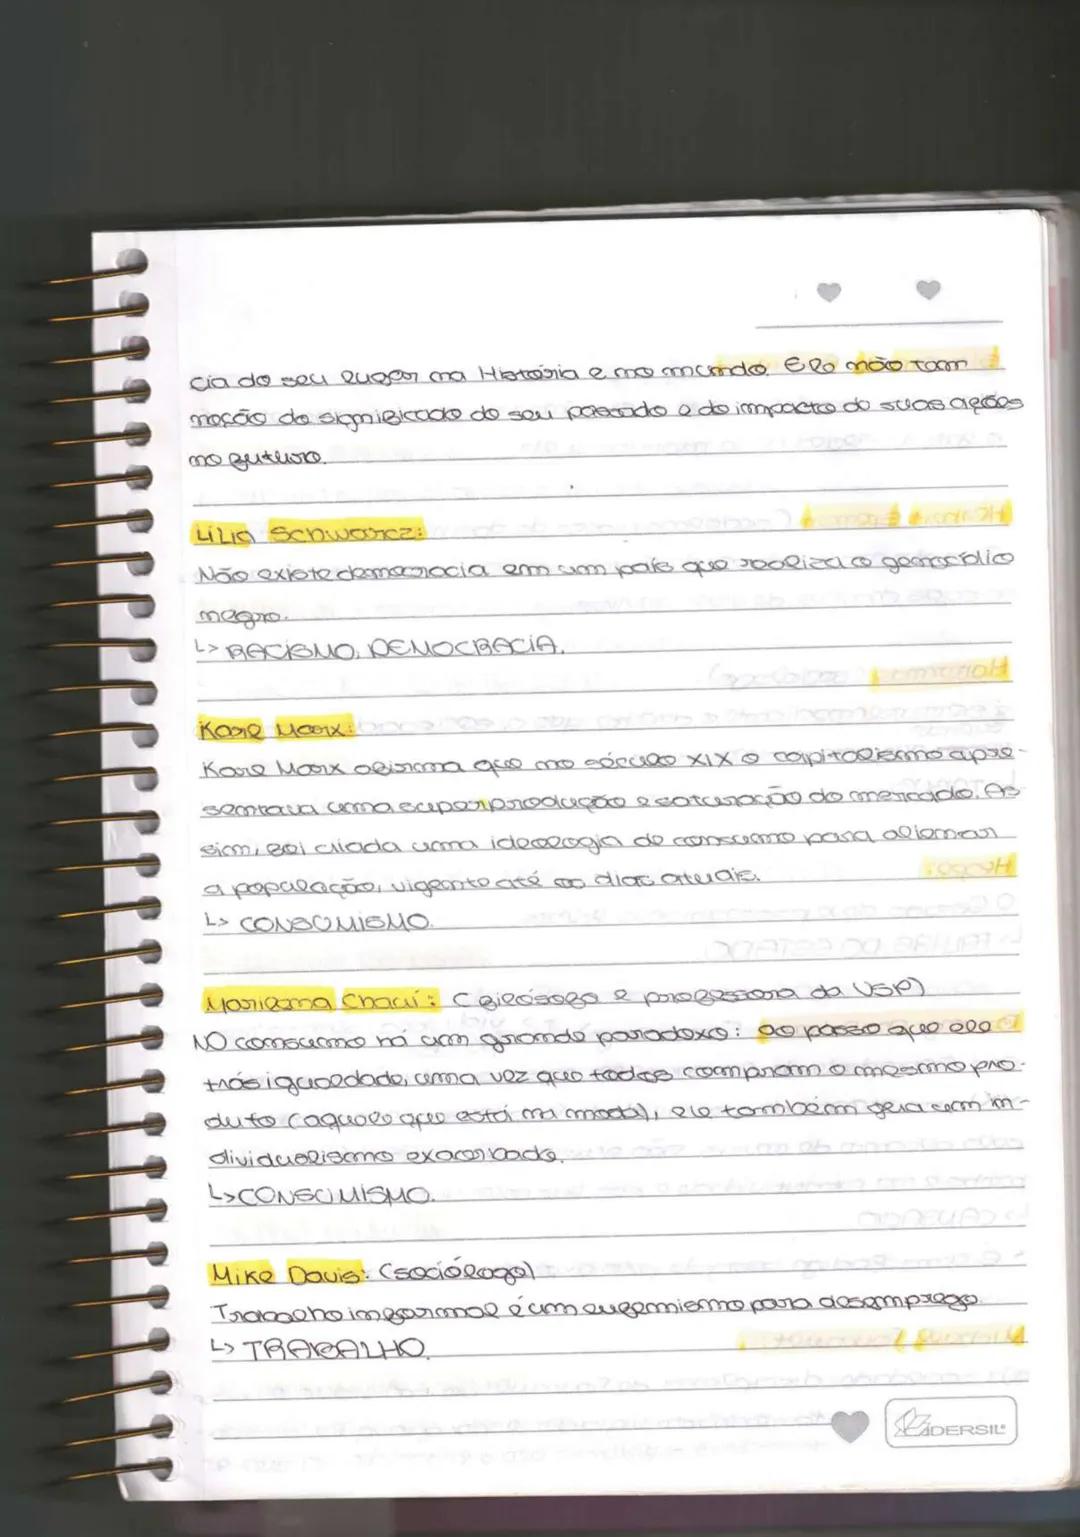 cia do seu lugar na História e no mundo. Ele não tem
noção do significado do seu passado e do impacto de suas ações
no futuro.
Lilia Schwarcz:
Não existe democracia em um país que realiza o genocídio
negro.
↳ RACISMO, DEMOCRACIA.
Karl Marx:
Karl Marx afirma que no século XIX o capitalismo apre-
sentava uma superprodução e saturação do mercado. As
sim, foi criada uma ideologia de consumo para alienar
a população, vigente até os dias atuais.
↳ CONSUMISMO.
Marilena Chauí: (filósofa e professora da USP)
NO consumo há um grande paradoxo: ao passo que ele
trás igualdade, uma vez que todos compram o mesmo pro-
duto (aquele que está na moda), ele também gera um in-
dividualismo exacerbado.
↳ CONSUMISMO.
Mike Davis: (sociólogo)
Trabalho informal é um eufemismo para desemprego.
↳ TRABALHO.
CADERSIL